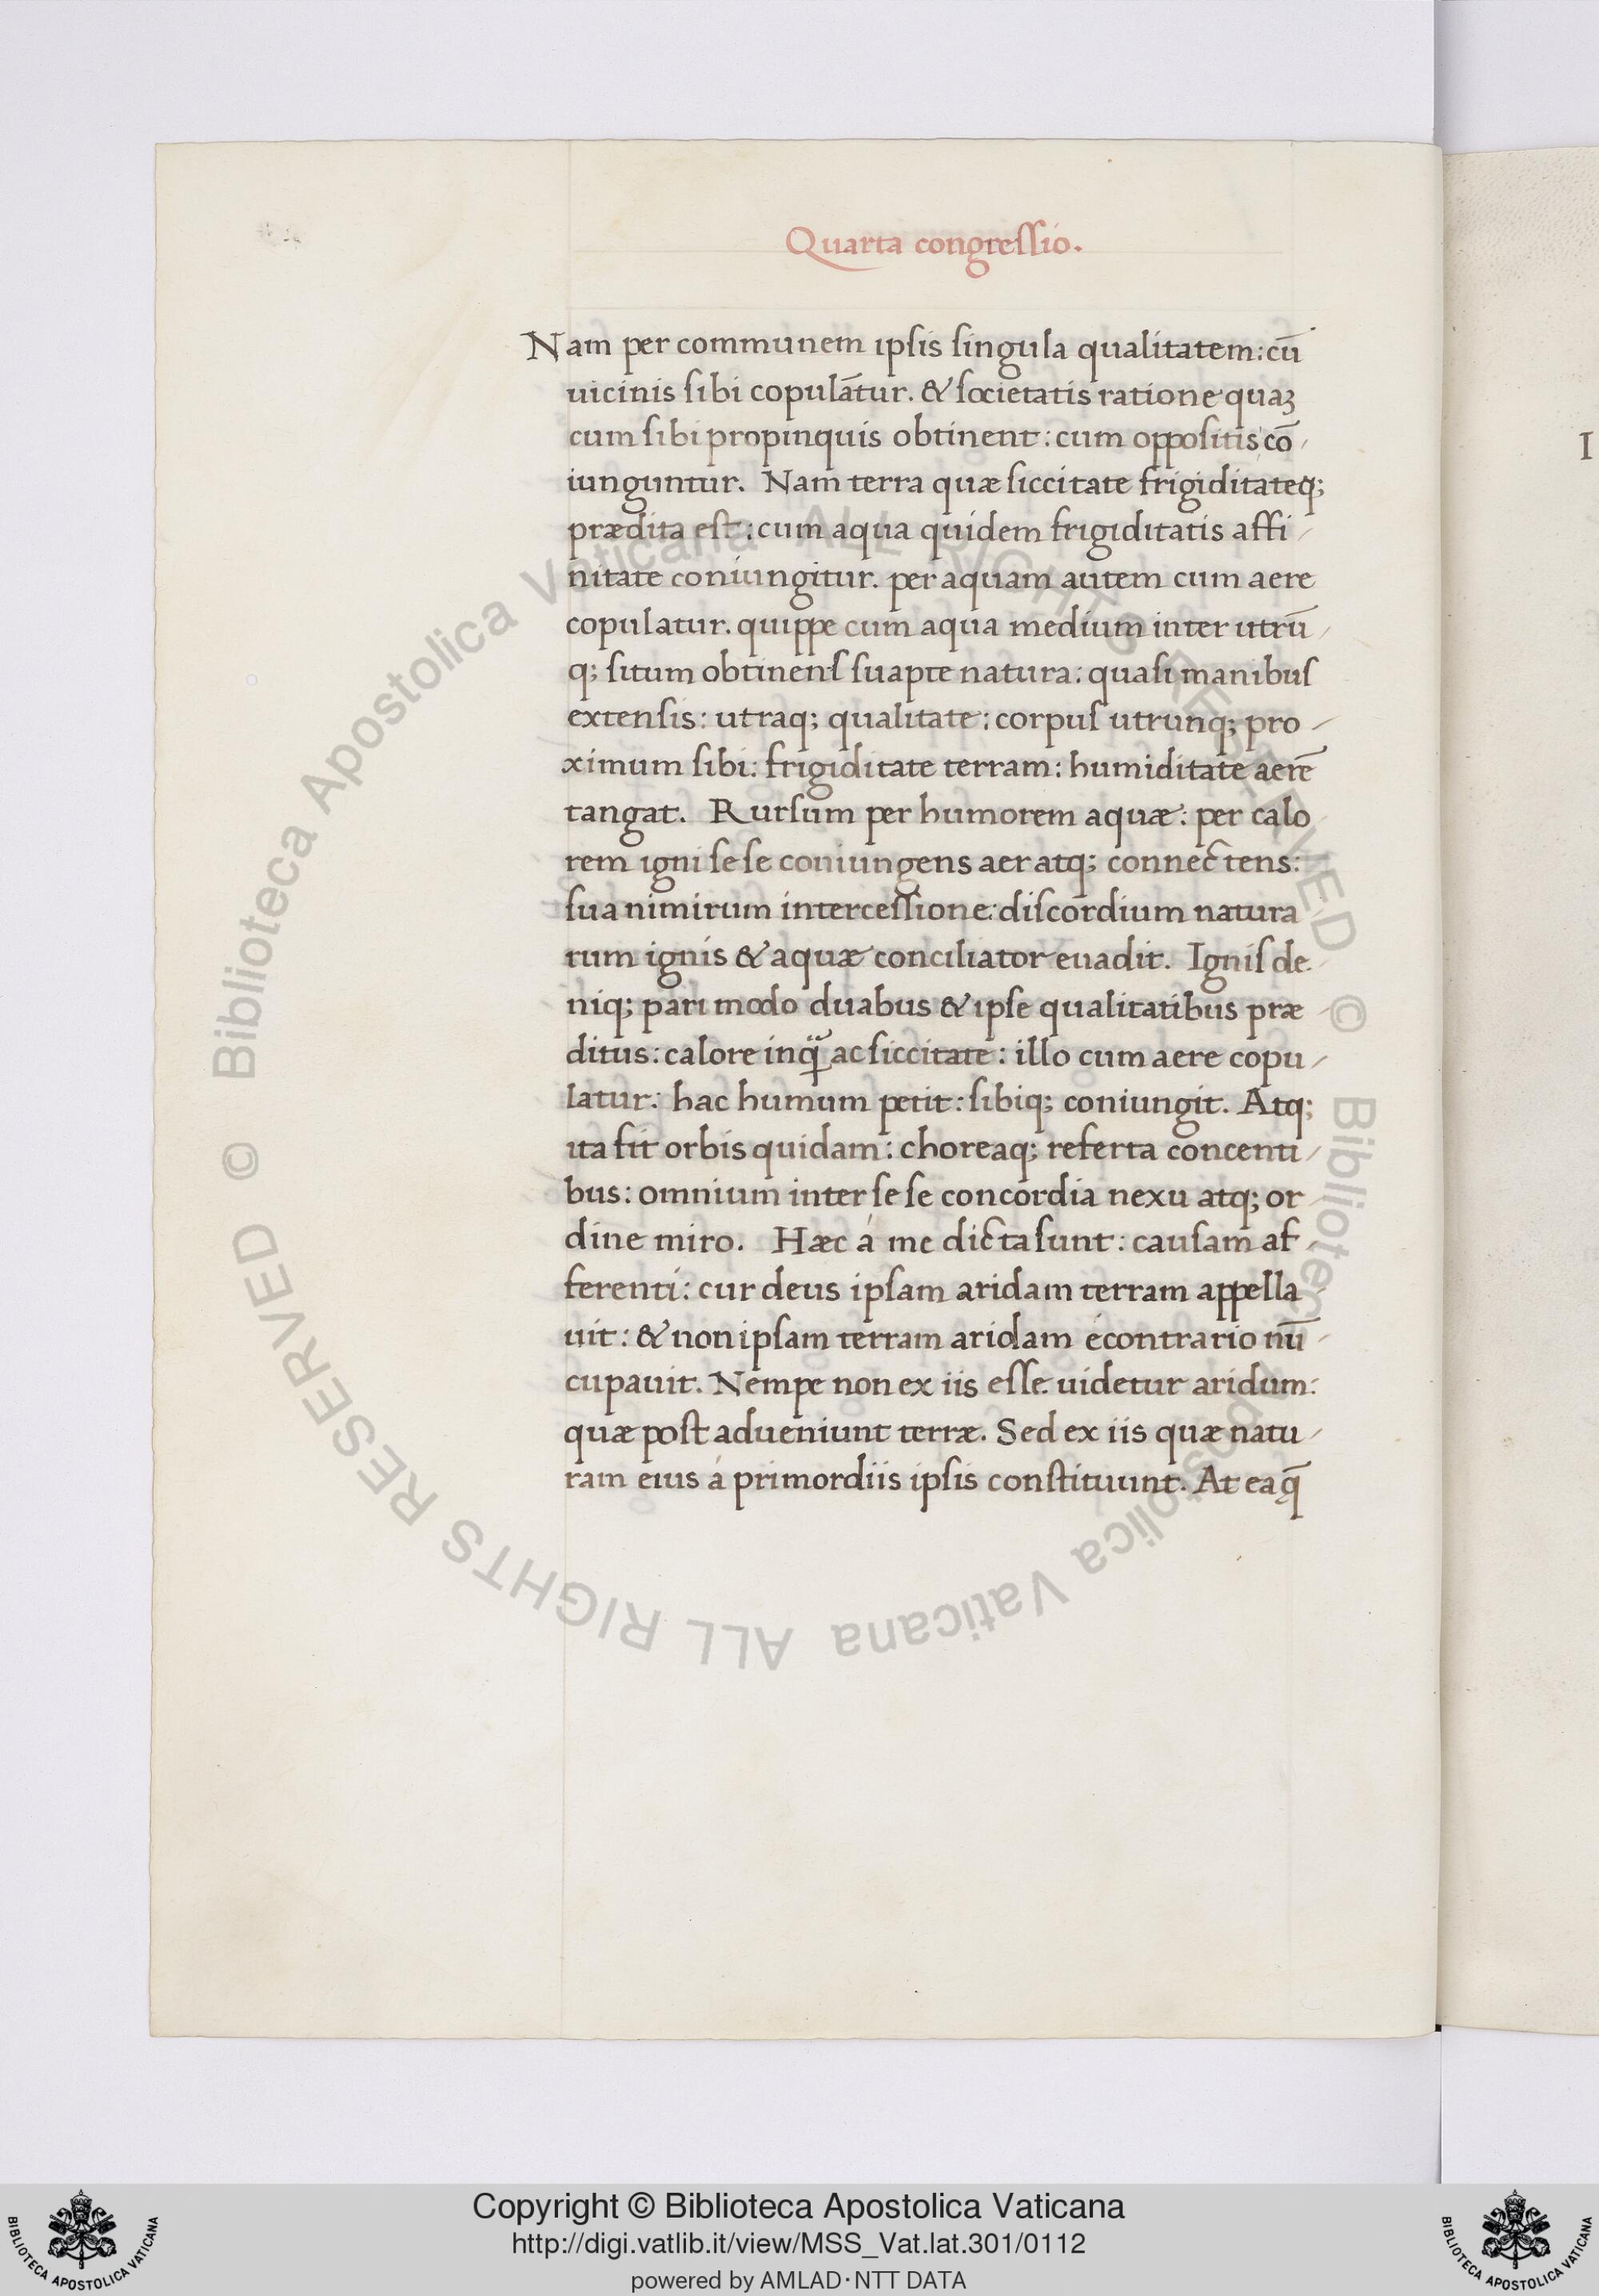 Quarta congreſſio.
Nam per communem ipſis ſingula qualitatem: cū
uicinis ſibi copulātur. & ſocietatis ratione quaꝫ
cum ſibi propinquis obtinent: cum oppoſitis cō
iunguntur. Nam terra quæ ſiccitate frigiditateq;
prædita eſt: cum aqua quidem frigiditatis affi
nitate coniungitur. per aquam autem cum aere
copulatur. quippe cum aqua medium inter utrū
q; ſitum obtinenſ ſuapte natura: quaſi manibuſ
extenſis: utraq; qualitate: corpuſ utrunq; pro
ximum ſibi: frigiditate terram: humiditate aerē
tangat. Rurſum per humorem aquæ: per calo
rem igni ſeſe coniungens aer atq; connectens:
ſua nimirum interceſſione: diſcordium natura
rum ignis & aquæ conciliator euadit. Igniſ de
niq; pari modo duabus & ipſe qualitatibus præ
ditus: calore inꝗ̈ ac ſiccitate: illo cum aere copu
latur: hac humum petit: ſibiq; coniungit. Atq;
ita fit orbis quidam: choreaq; referta concenti
bus: omnium inter ſeſe concordia nexu atq; or
dine miro. Hæc á me dicta ſunt: cauſam af
ferenti: cur deus ipſam aridam terram appella
uit: & non ipſam terram aridam écontrario nū
cupauit. Nempe non ex iis eſſe uidetur aridum:
quæ poſt adueniunt terræ. Sed ex iis quæ natu
ram eius á primordiis ipſis conſtituunt. At ea q̄
I
© Biblioteca Apostolica Vaticana ALL RIGHTS RESERVED © Biblioteca Apostolica Vaticana ALL RIGHTS RESERVED
Copyright © Biblioteca Apostolica Vaticana
http://digi.vatlib.it/view/MSS_Vat.lat.301/0112
powered by AMLAD·NTT DATA
BIBLIOTECA APOSTOLICA VATICANA
BIBLIOTECA APOSTOLICA VATICANA